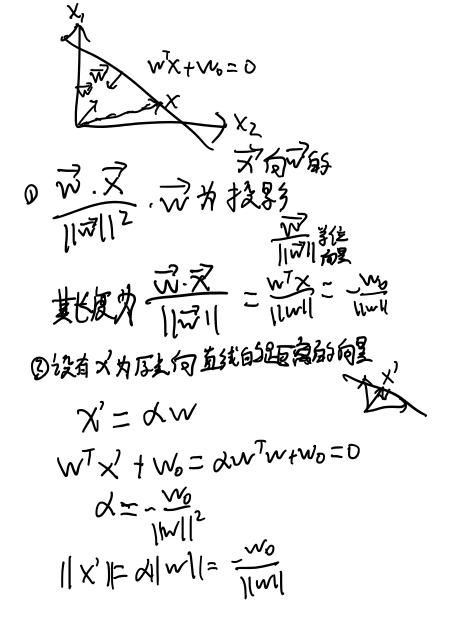 x₁
w⃗
wᵀx+w₀=0
w⃗
x
x₂
① (w⃗·x⃗)/||w⃗||² · w⃗ 为 x⃗向w⃗的投影
w⃗/||w⃗|| 单位向量
其长度为 (w⃗·x⃗)/||w⃗|| = wᵀx/||w|| = -w₀/||w||
②设有x'为原点向直线的距离的向量
x'
x' = αw
wᵀx' + w₀ = αwᵀw+w₀=0
α = -w₀/||w||²
||x'|| = α||w|| = -w₀/||w||